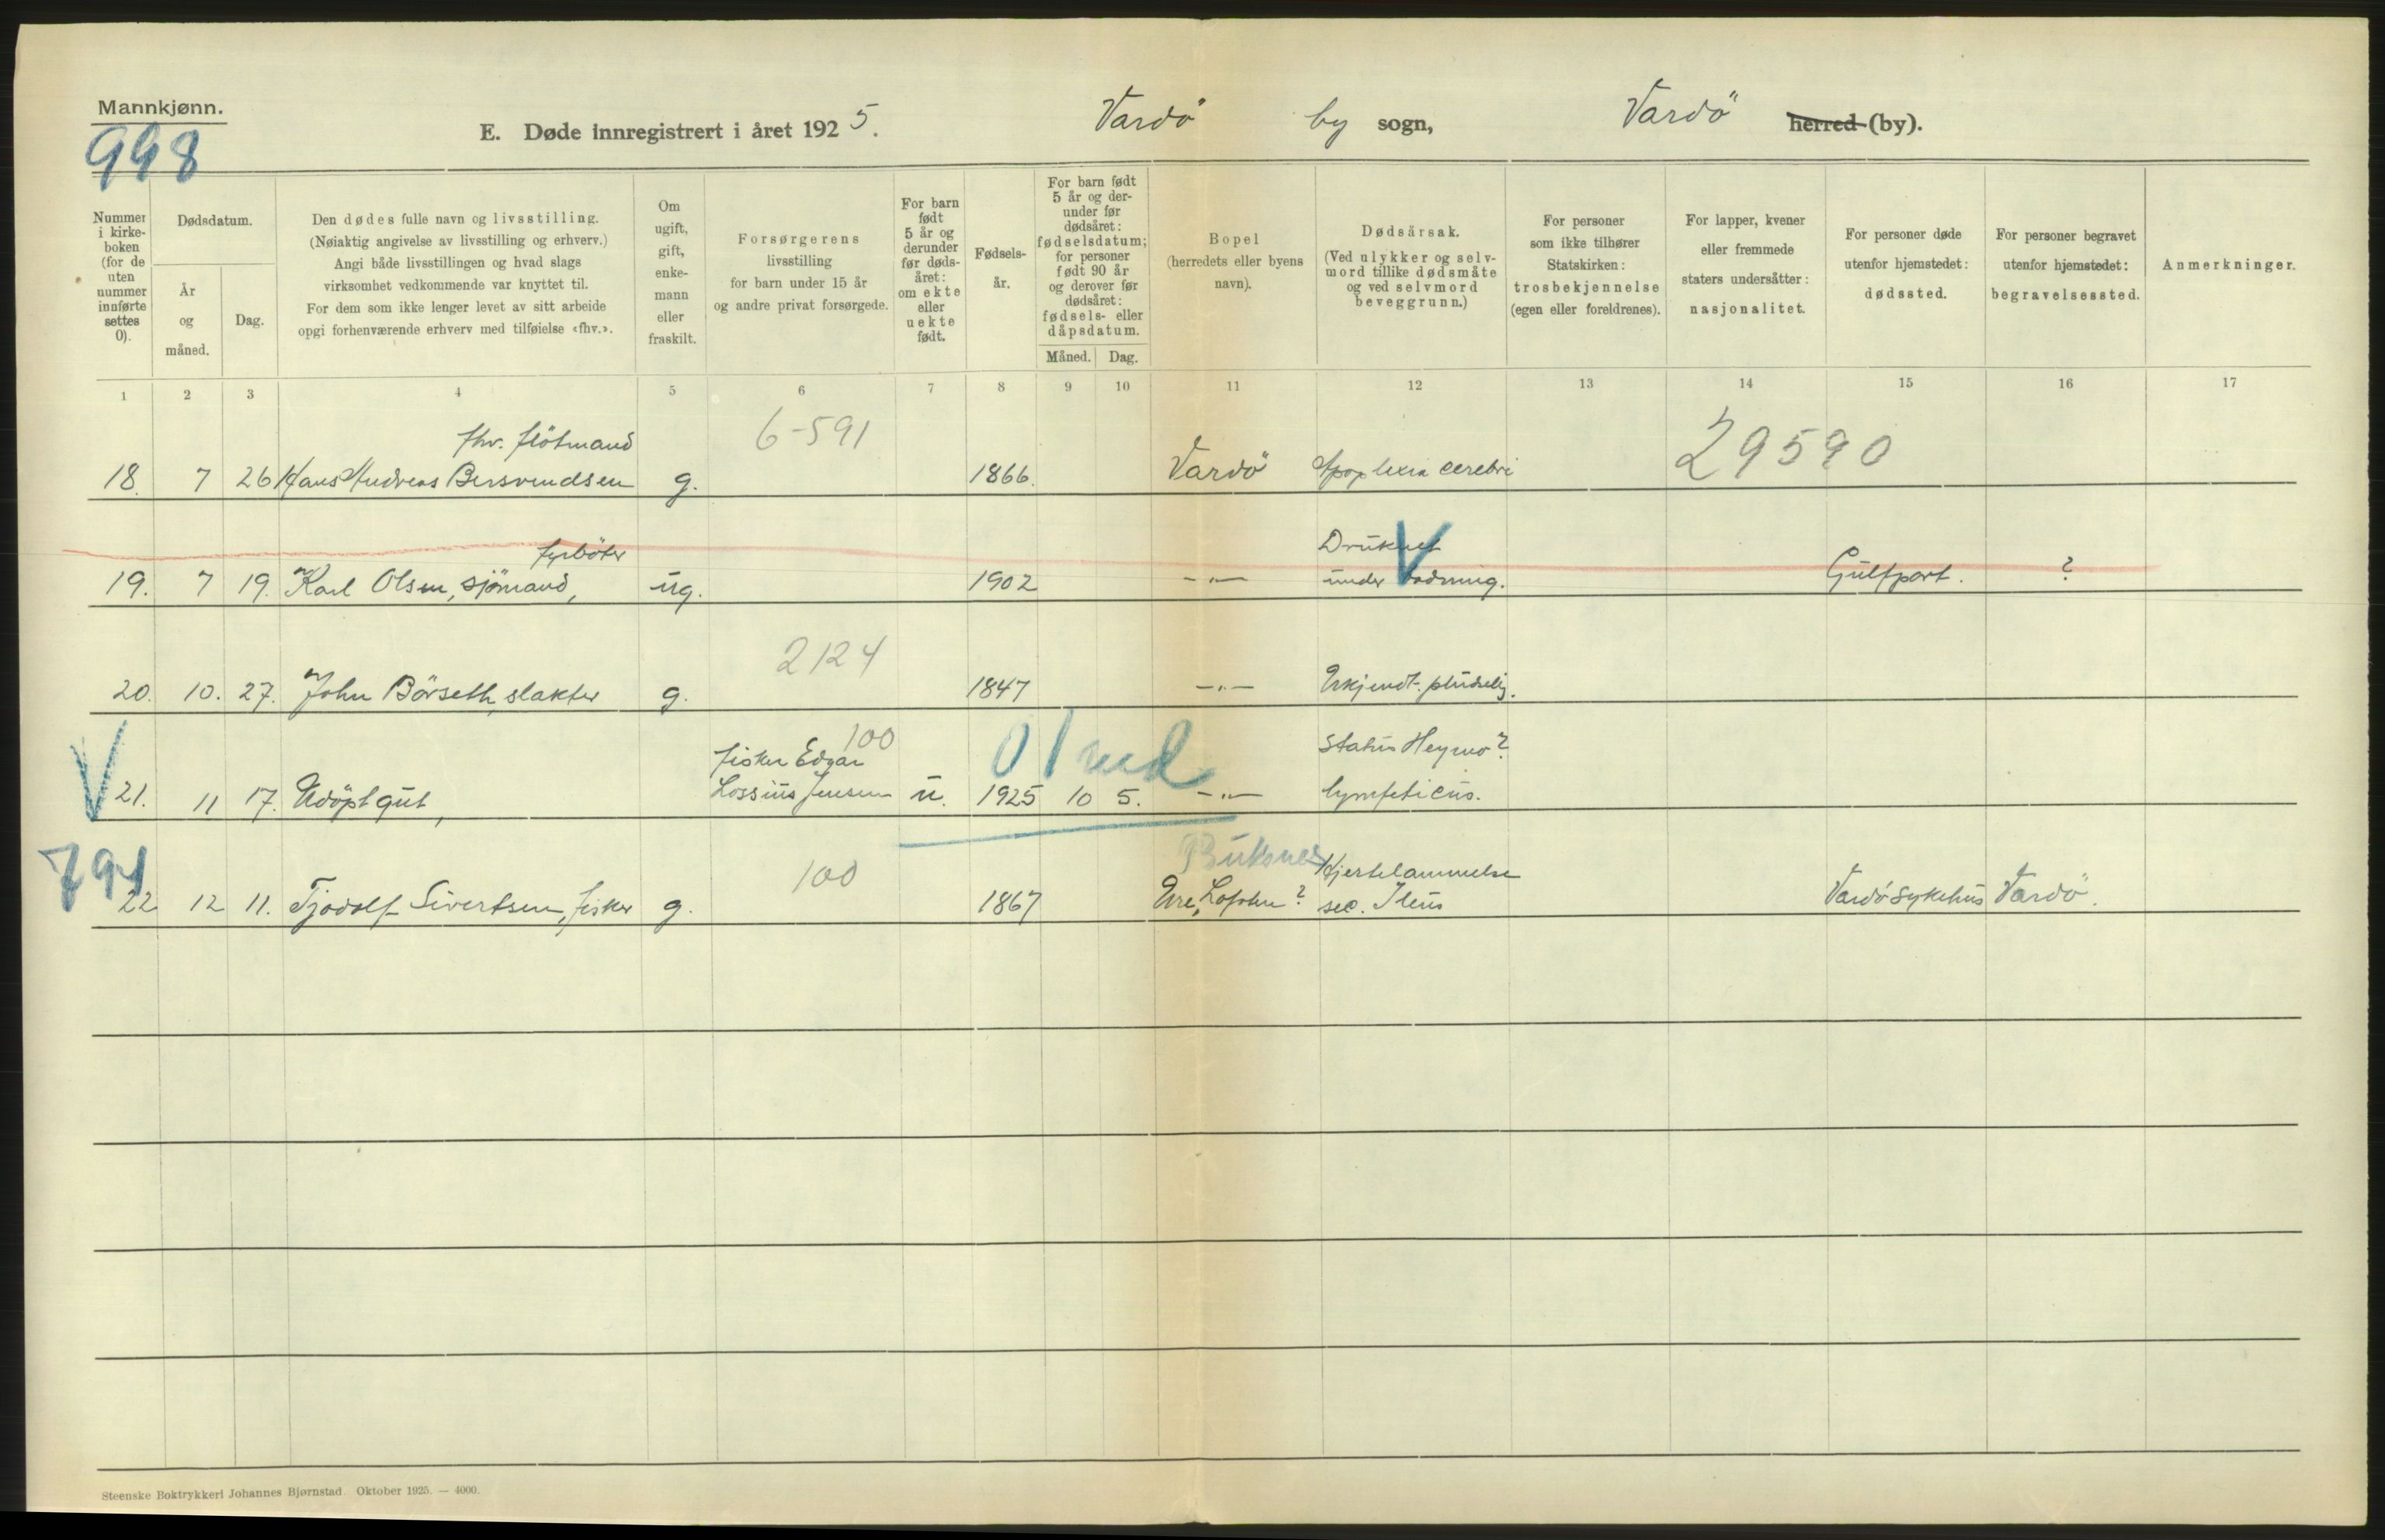 Mannkjønn.
998
E. Døde innregistrert i året 1925. Vardö by sogn, Vardö herred (by).
Nummer i kirke-boken (for de uten nummer innførte settes 0).
Dødsdatum.
År og måned.
Dag.
Den dødes fulle navn og livsstilling.
(Nøiaktig angivelse av livsstilling og erhverv.)
Angi både livsstillingen og hvad slags
virksomhet vedkommende var knyttet til.
For dem som ikke lenger levet av sitt arbeide
opgi forhenværende erhverv med tilføielse «fhv.».
Om ugift, gift, enke-mann eller fraskilt.
Forsørgerens
livsstilling
for barn under 15 år
og andre privat forsørgede.
For barn født 5 år og derunder før døds-året: om ekte eller uekte født.
Fødsels-år.
For barn født 5 år og der-under før dødsåret: fødselsdatum; for personer født 90 år og derover før dødsåret: fødsels- eller dåpsdatum.
Måned. Dag.
Bopel
(herredets eller byens
navn).
Dødsårsak.
(Ved ulykker og selv-
mord tillike dødsmåte
og ved selvmord
beveggrunn.)
For personer
som ikke tilhører
Statskirken:
trosbekjennelse
(egen eller foreldrenes).
For lapper, kvener
eller fremmede
staters undersåtter:
nasjonalitet.
For personer døde
utenfor hjemstedet:
dødssted.
For personer begravet
utenfor hjemstedet:
begravelsessted.
Anmerkninger.
1 2 3 4 5 6 7 8 9 10 11 12 13 14 15 16 17
fhv. flötmand 6-591 29590
18. 7 26 Hans Andreas Bersvendsen g. 1866. Vardö Apoplexia cerebri
fyrböter Druknet V
19. 7 19. Karl Olsen, sjömand, ug. 1902 -"- under badning. Gulfport. ?
2124
20. 10. 27. John Börseth, slakter g. 1847 -"- Ukjendt. pludselig.
V fisker Edgar 100 01 md Status
21. 11 17. Udöpt gut, Lossius Jensen u. 1925 10 5. -"- lymfaticus.
794 100 Buksnes Hjertelammelse
22 12 11. Tjodolf Sivertsen, fisker g. 1867 Ure, Lofoten? sec. Ileus Vardö sykehus Vardö.
Steenske Boktrykkeri Johannes Bjørnstad Oktober 1925. — 4000.